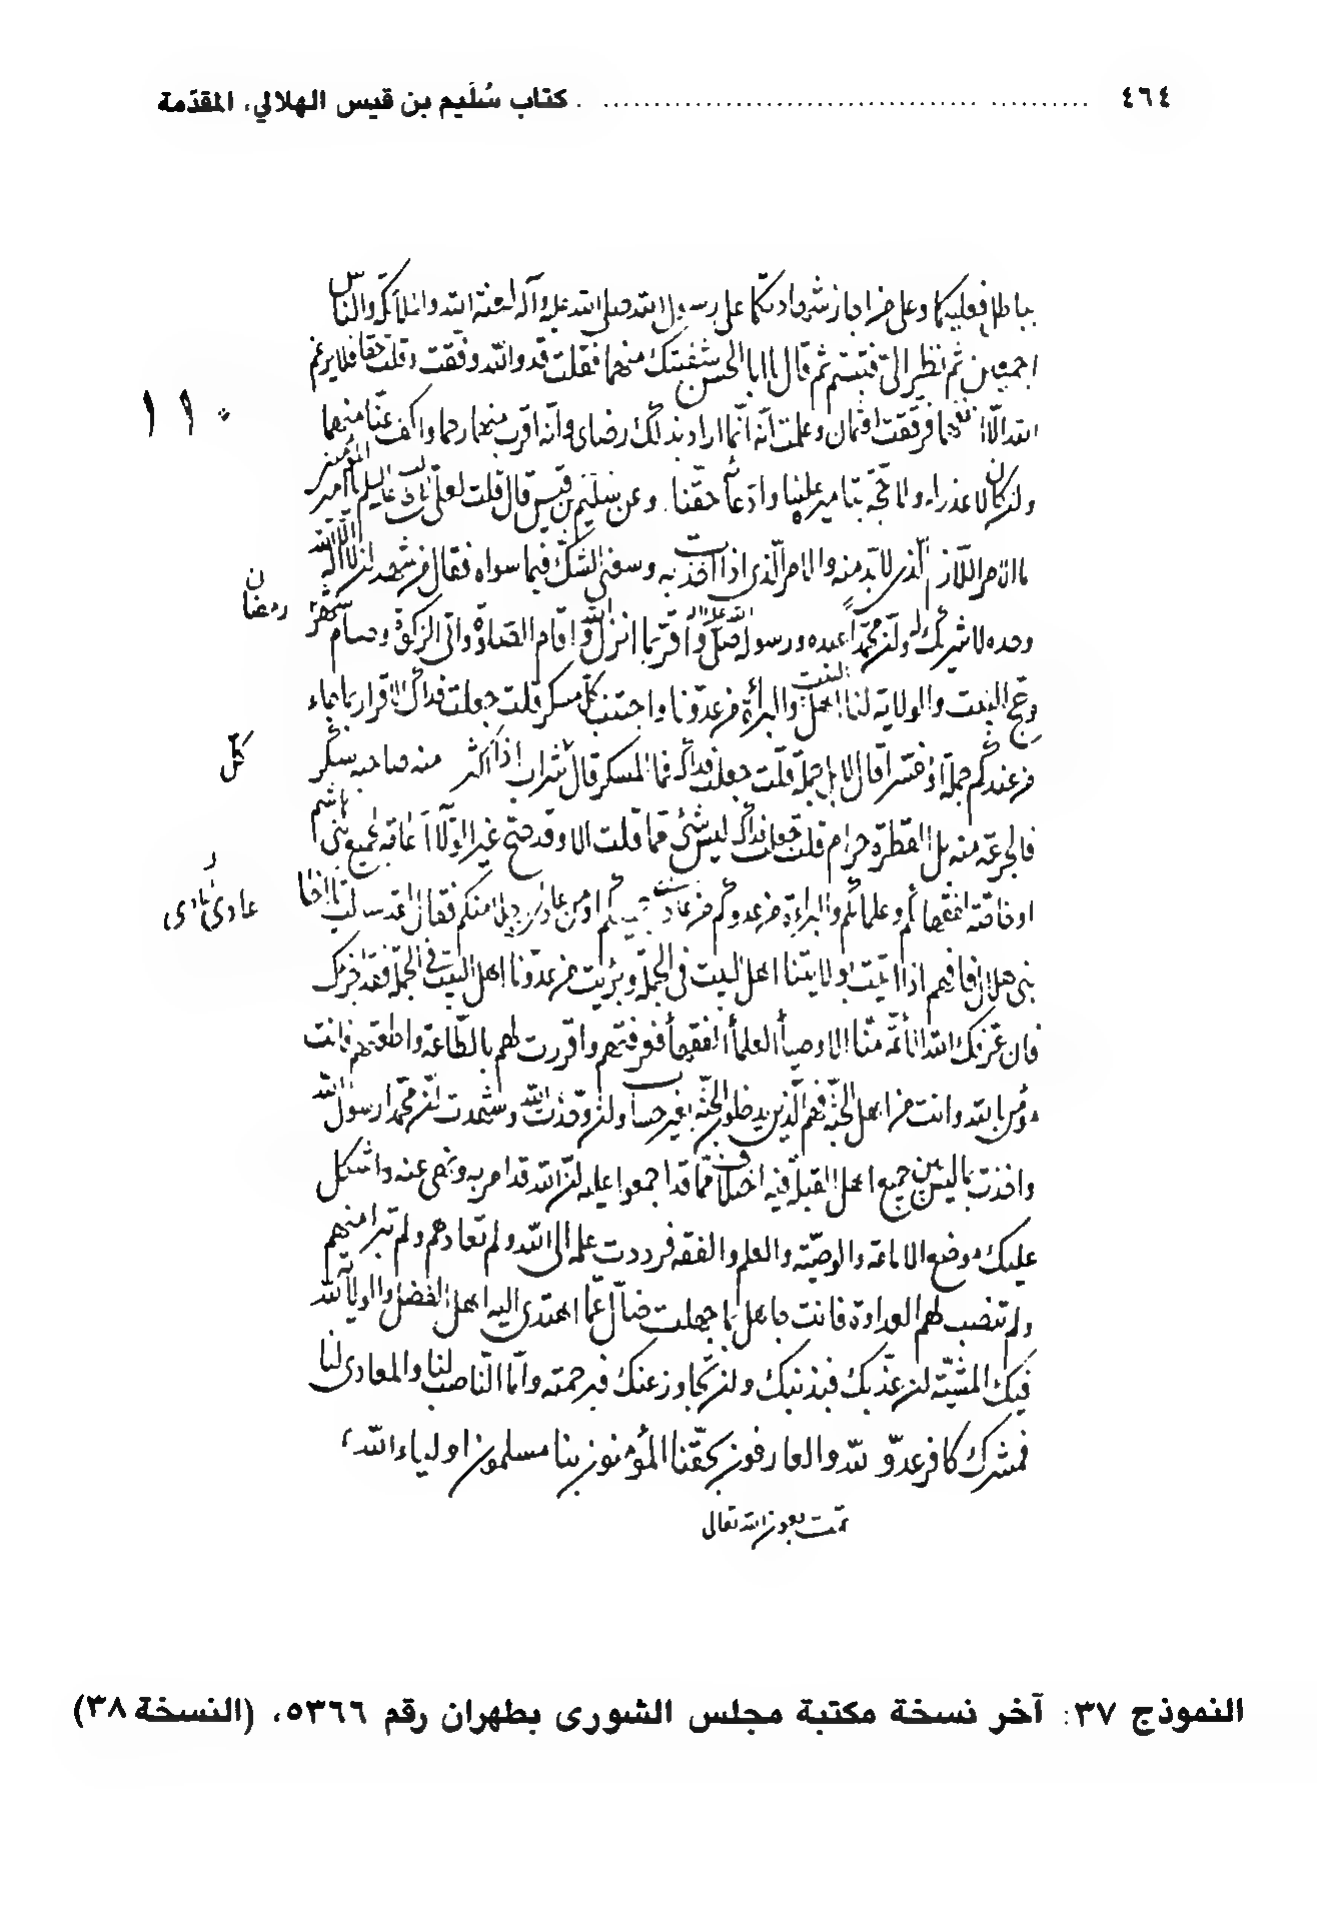 ٤٦٤ .................................................. كتاب سُلَيم بن قيس الهلالي، المقدّمة
فعليهما وعلى من اجاز شهادتكما على رسول الله صلى الله عليه وآله لعنة الله والملائكة والناس
اجمعين ثم نظر الىّ فتبسّم ثم قال يا ابا الحسن شفيتك منهما فقلت قد والله وفقت وقلت حقا فلا يرغم
الله الّا فرققت لعثمان وعلمت انّه انّما اراد بذلك رضاى وانّه اقرب منهما رحما واكف عنّا منهما
ولن كان لا عذر له ولا حجّة بتاميره علينا وادعائه حقّنا. وعن سليم بن قيس قال قلت لعلىّ عليه السلم يا امير المؤمنين
ما الامر اللازم الّذى لا بدّ منه والامر الّذى اذا اخذت به وسعنى الشكّ فيما سواه فقال من شهد ان لا اله الا الله
وحده لا شريك له وان محمّداً عبده ورسوله صلى الله عليه وآله واقرّ بما انزل الله واقام الصلوة واتى الزكوة وصام شهر
رمضان
وحج البيت والولاية لنا اهل البيت والبرأة من عدوّنا واجتنب كلّ مسكر قلت جعلت فداك الاقرار بما جاء
من عندكم جملة او مفسّرا قال لا بل جملة قلت جعلت فداك فما المسكر قال كل شراب اذا اكثر منه صاحبه سكر
كلّ
فالجرعة منه بل القطرة حرام قلت جعلت فداك ليس شىء مما قلت الا وقد صحّ غير الولاية لجميع بنى هاشم
او خاصّة لفقهائكم وعلمائكم والبراءة من عدوكم من شيعتكم او من عادى رجلا منكم فقال لقد سالت يا اخا
عادى
بنى هلال فافهم اذا اتيت بولايتنا اهل البيت فى الجملة وبرئت من عدوّنا اهل البيت فى الجملة فقد اجزك
فان عرّفك الله الائمّة منّا الاوصيأ العلمأ الفقهأ فعرفتهم واقررت لهم بالطّاعة واطعتهم فانت
مؤمن بالله وانت من اهل الجنّة فهم الّذين يدخلون الجنّة بغير حساب ولن وحّدت الله وشهدت انّ محمّدا رسول الله
واخذت بما ليس بين جميع اهل القبلة فيه اختلاف ممّا قد اجمعوا عليه انّ الله قد امر به ونهى عنه واشكل
عليك موضع الامامة والوصيّة والعلم والفقه فرددت علمه الى الله ولم تعادهم ولم تبرا منهم
ولم تنصب لهم العداوة فانت جاهل بما جهلت ضالّ عمّا اهتدى اليه اهل الفضل والولاية لله
فيك المشيّة ان عذّبك فبذنبك وان تجاوز عنك فبرحمته وامّا النّاصب لنا والمعادى لنا
فمشرك كافر عدوّ لله والعارفون بحقّنا المؤمنون بنا مسلمون اولياء الله
تمت بعون الله تعالى
النموذج ٣٧: آخر نسخة مكتبة مجلس الشورى بطهران رقم ٥٣٦٦، (النسخة ٣٨)